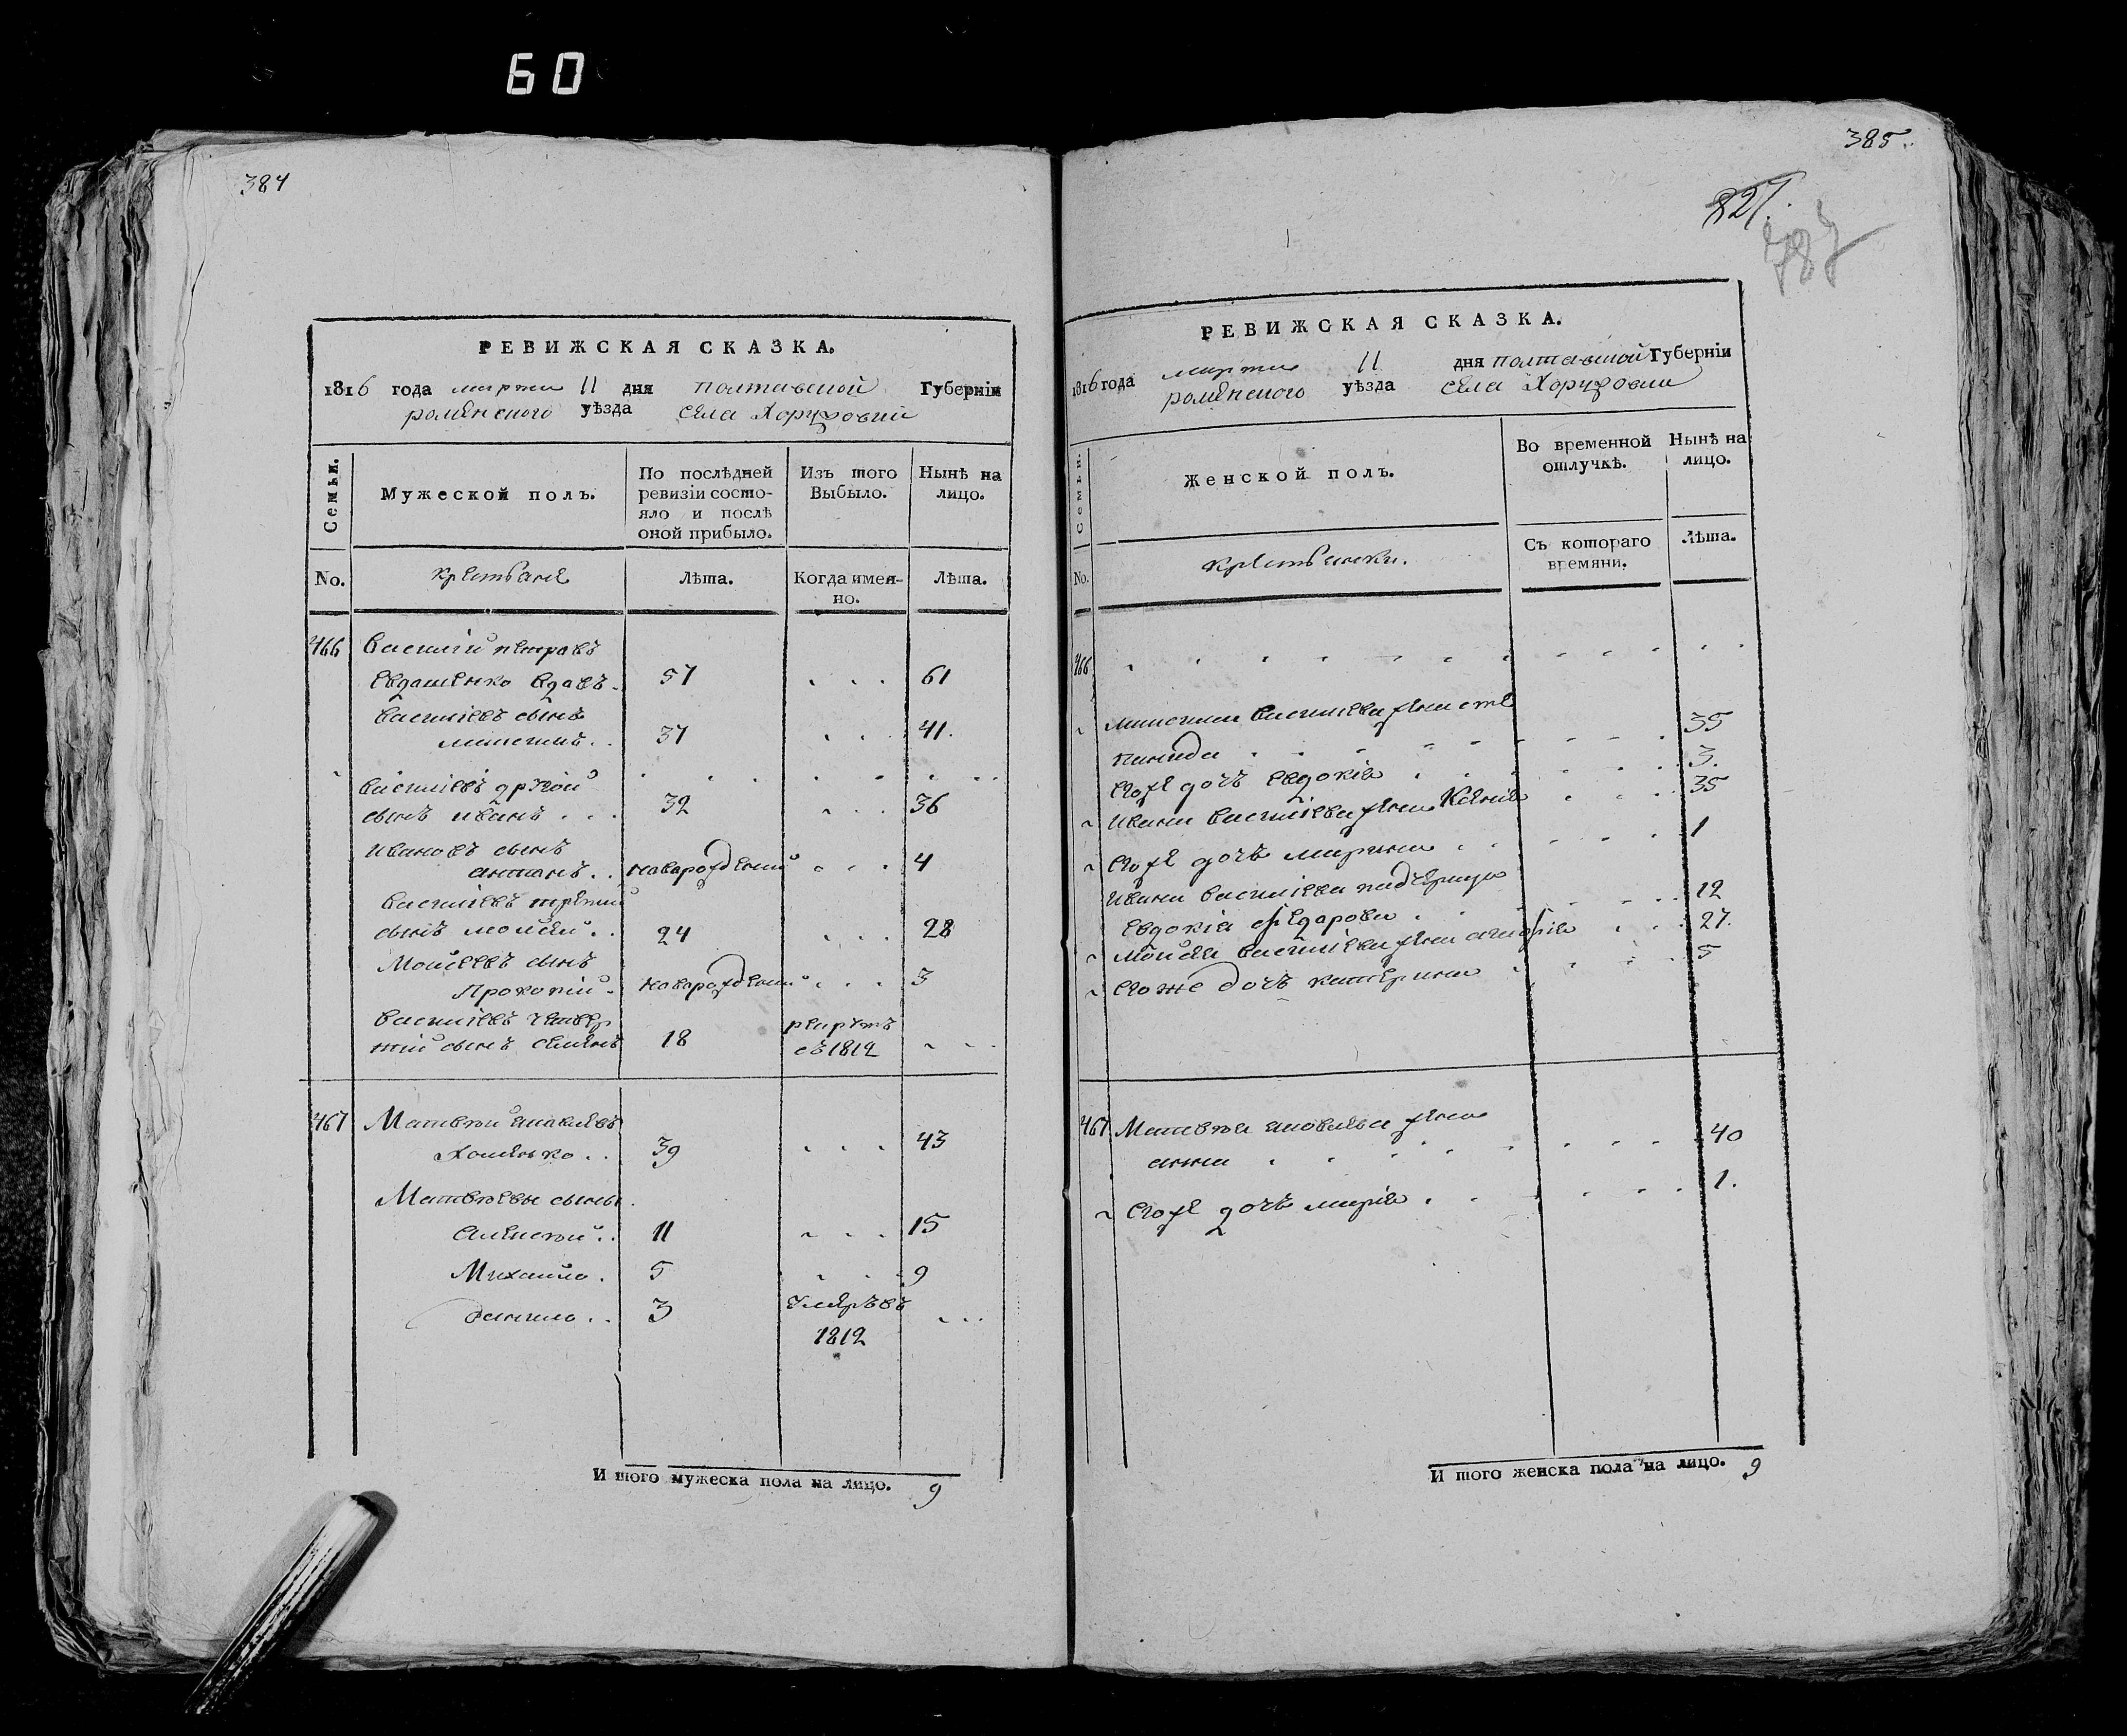 60
384
РЕВИЖСКАЯ СКАЗКА.
1816 года марта 11 дня полтавской Губерніи
роменского уѣзда села Хоружовки
Семьи.
Мужеской полъ.
По послѣдней
ревизіи состо-
яло и послѣ
оной прибыло.
Изъ того
Выбыло.
Нынѣ на
лицо.
No.
крестьяне
Лѣта.
Когда имен-
но.
Лѣта.
466 Василій петровъ
Евдашенко вдовъ. 57 61
Василіевъ сынъ
37 41.
Василіевъ другой
сынъ иванъ 32 36
ивановъ сынъ
антонъ. новорожденій 4
Василіевъ третій
сынъ мойсей. 24 28
Мойсеевъ сынъ
Прокопій новорожденій 3
Василіевъ четвер
тій сынъ семенъ 18
рекрутъ
въ 1812
467 Матвѣй яковлевъ
Хоменко 39 43
Матвѣевы сыны
алексѣй 11 15
Михайло. 5 9
данило 3
умеръ въ
1812
И того мужеска пола на лицо. 9
385.
787
РЕВИЖСКАЯ СКАЗКА.
1816 года марта 11 дня полтавской Губерніи
роменского уѣзда села Хоружовки
Семьи.
Женской полъ.
Во временной
отлучкѣ.
Нынѣ на
лицо.
No.
крестьянки.
Съ котораго
времяни.
Лѣта.
466
василіева жена
35
его же дочь евдокія 3.
ивана василіева жена Ксенія 35
его же дочь марина 1
ивана василіева падчерица
евдокія федорова 12
мойсея василіева жена агафія 27.
его же дочь катерина 5
467 Матвѣя яковлева жена
анна 40
его же дочь марія 1.
И того женска пола на лицо. 9